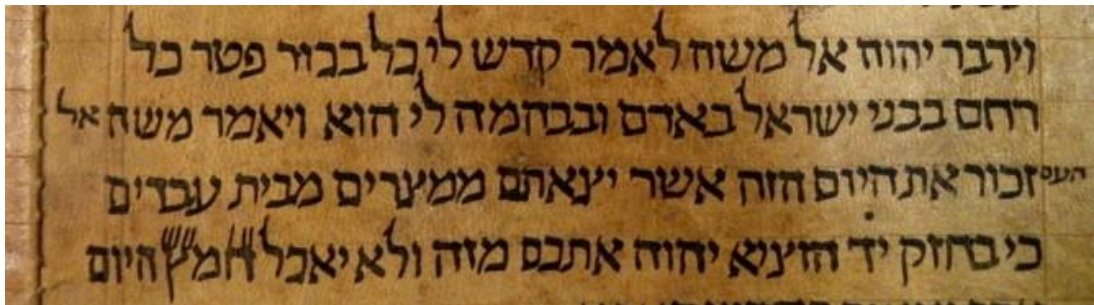 וידבר יהוה אל משה לאמר קדש לי כל בכור פטר כל
רחם בבני ישראל באדם ובבהמה לי הוא ויאמר משה אל
העם זכור את היום הזה אשר יצאתם ממצרים מבית עבדים
כי בחזק יד הוציא יהוה אתכם מזה ולא יאכל חמץ היום